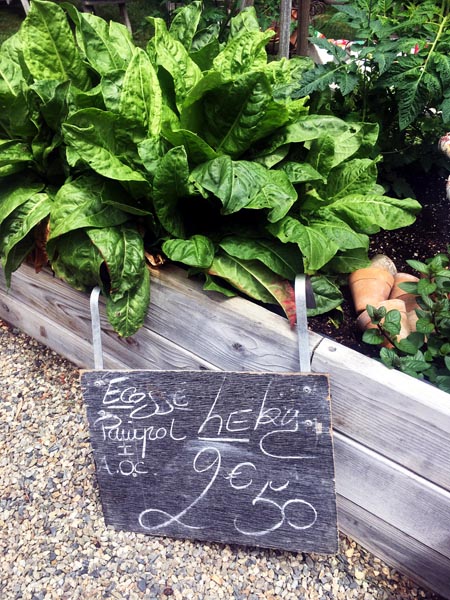 Ecosse
Paimpol
I
A.O.C
le kg
2€50